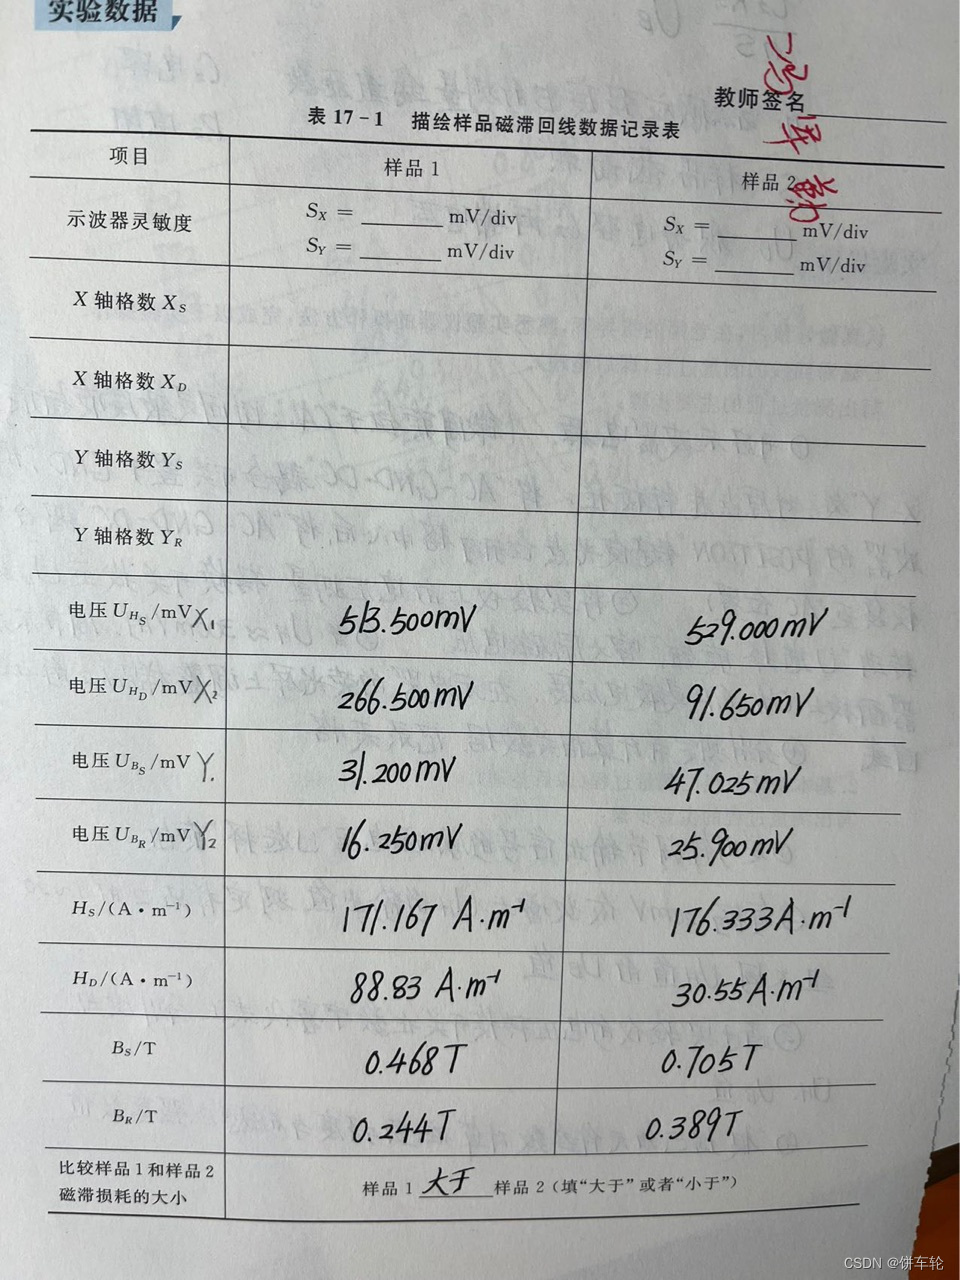 实验数据
教师签名
表 17-1 描绘样品磁滞回线数据记录表
项目 样品 1 样品 2
示波器灵敏度 SX = ______ mV/div SX = ______ mV/div
SY = ______ mV/div SY = ______ mV/div
X 轴格数 XS
X 轴格数 XD
Y 轴格数 YS
Y 轴格数 YR
电压 UHS/mV X1 513.500mV 529.000mV
电压 UHD/mV X2 266.500mV 91.650mV
电压 UBS/mV Y. 31.200mV 47.025mV
电压 UBR/mV Y2 16.250mV 25.900mV
HS/(A·m⁻¹) 171.167 A·m⁻¹ 176.333A·m⁻¹
HD/(A·m⁻¹) 88.83 A·m⁻¹ 30.55A·m⁻¹
BS/T 0.468T 0.705T
BR/T 0.244T 0.389T
比较样品 1 和样品 2
磁滞损耗的大小
样品 1 大于 样品 2（填“大于”或者“小于”）
CSDN @饼车轮